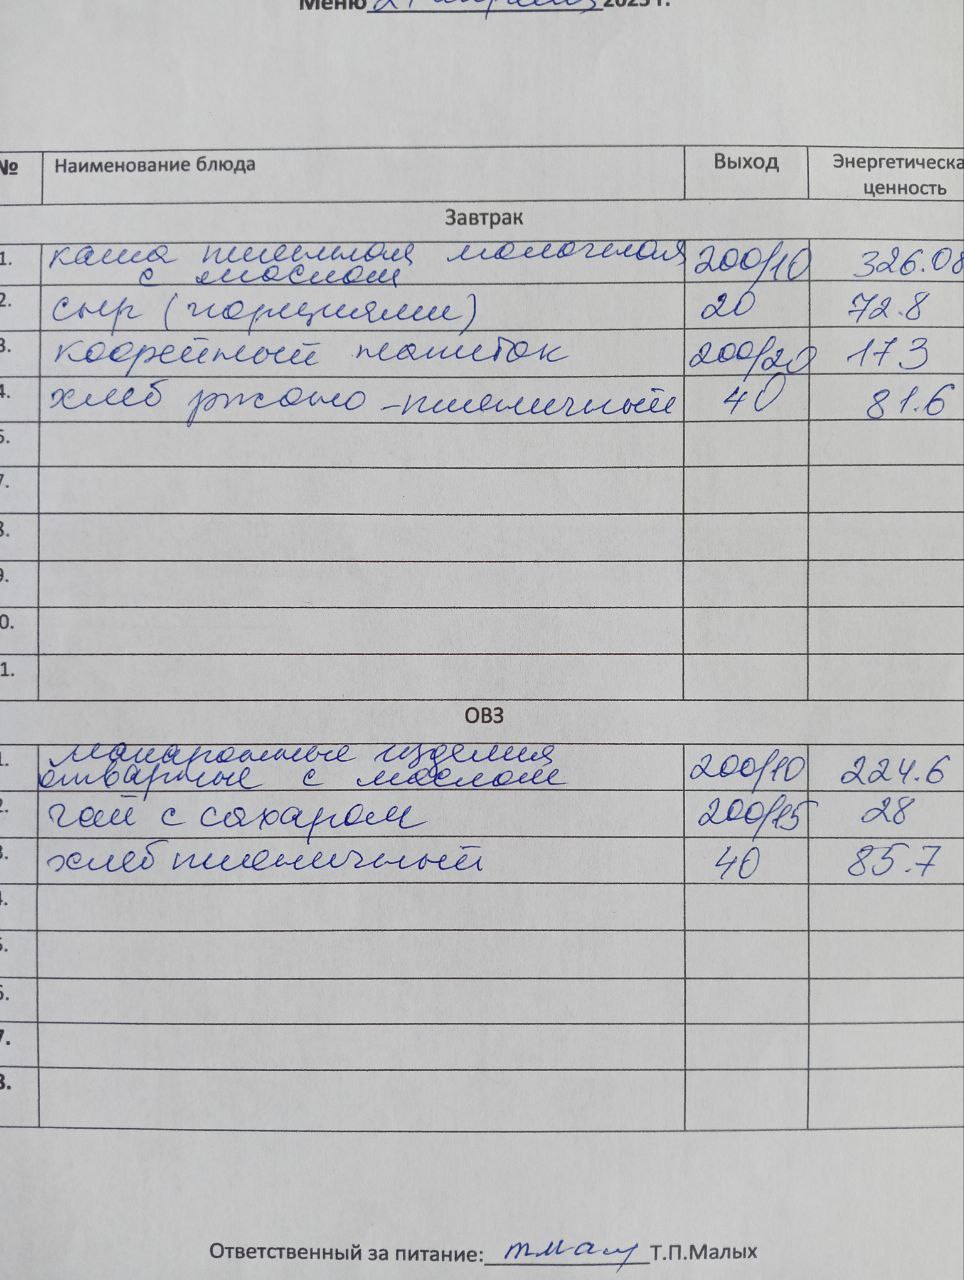 Меню 2025 г.
№ Наименование блюда Выход Энергетическа
ценность
Завтрак
1. каша пшенная молочная 200/10 326.08
с маслом
2. сыр (порциями) 20 72.8
3. кофейный напиток 200/20 173
4. хлеб ржано-пшеничный 40 81.6
5.
7.
8.
9.
0.
1.
ОВЗ
1. макаронные изделия
отварные с маслом 200/10 224.6
2. чай с сахаром 200/15 28
3. хлеб пшеничный 40 85.7
4.
5.
6.
7.
8.
Ответственный за питание: Т.П.Малых